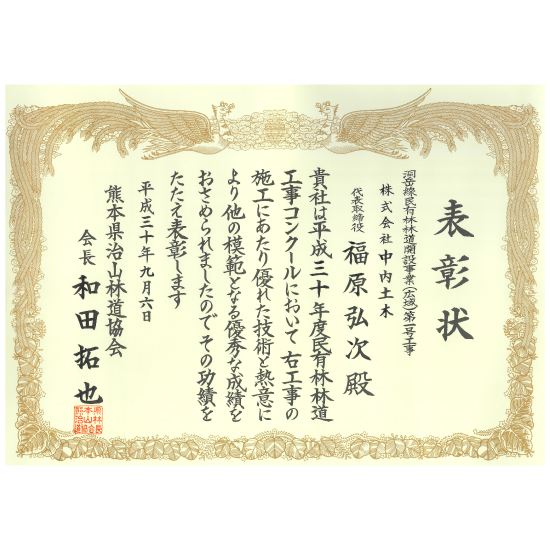 表彰状
洞岳線民有林林道開設事業(広域)第一号工事
株式会社中内土木
代表取締役 福原弘次殿
貴社は平成三十年度民有林林道
工事コンクールにおいて右工事の
施工にあたり優れた技術と熱意に
より他の模範となる優秀な成績を
おさめられましたのでその功績を
たたえ表彰します
平成三十年九月六日
熊本県治山林道協会
会長 和田拓也